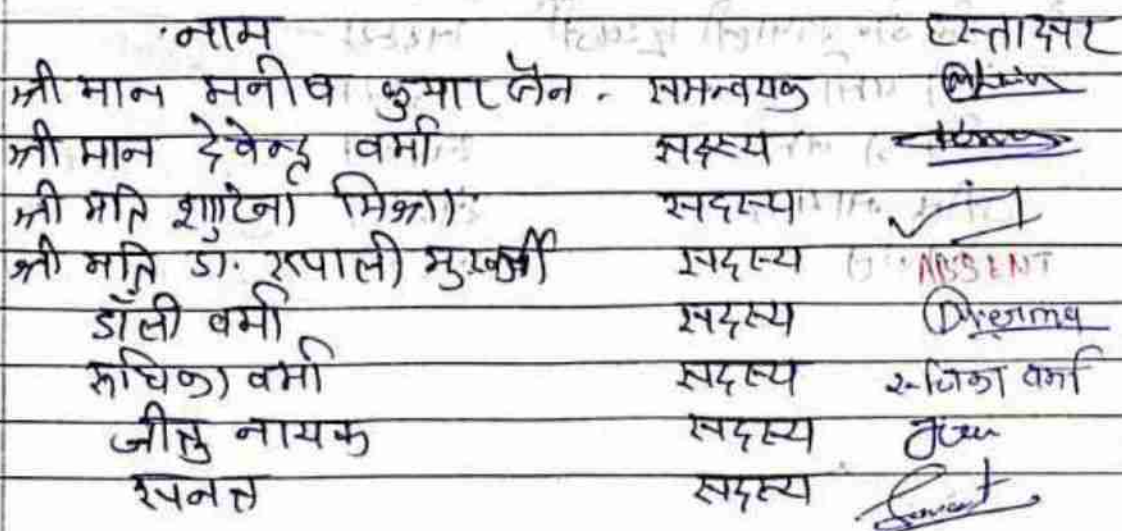 नाम हस्ताक्षर
श्री मान मनीष कुमार जैन - समन्वयक
श्री मान देवेन्द्र वर्मा सदस्य
श्री मति मिश्रा सदस्य
श्री मति डॉ. रुपाली मुखर्जी सदस्य ABSENT
डॉली वर्मा सदस्य DVerma
रुचिका वर्मा सदस्य रुचिका वर्मा
जीतु नायक सदस्य
सदस्य